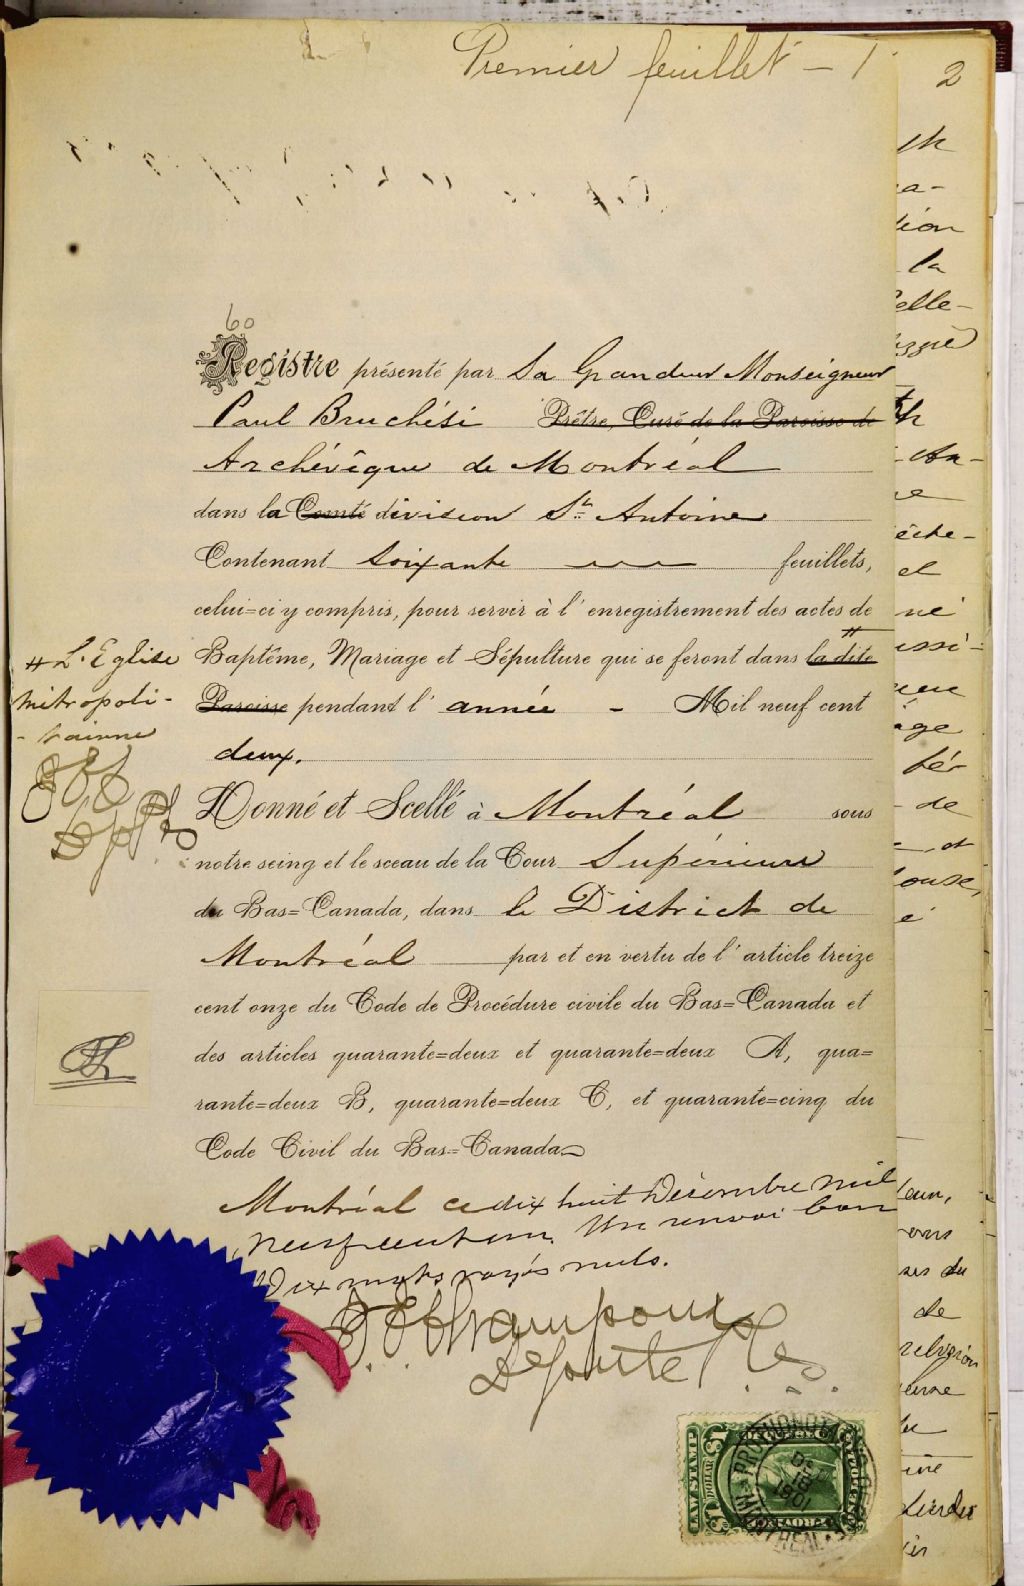 Premier feuillet - 1
2
60
Registre présenté par Sa Grandeur Monseigneur
Paul Bruchési Prêtre, Curé de la Paroisse de
Archévêque de Montréal
dans la Comté division St. Antoine
Contenant soixante feuillets,
celui=ci y compris, pour servir à l'enregistrement des actes de
# L'Eglise
métropoli-
-taine
Baptême, Mariage et Sépulture qui se feront dans la dite #
Paroisse pendant l'année - Mil neuf cent
deux.
Donné et Scellé à Montréal sous
notre seing et le sceau de la Cour Supérieure
du Bas=Canada, dans le District de
Montréal par et en vertu de l'article treize
cent onze du Code de Procédure civile du Bas=Canada et
des articles quarante=deux et quarante=deux A, qua=
rante=deux B, quarante=deux C, et quarante=cinq du
Code Civil du Bas=Canada
Montréal ce dix huit Décembre mil
neuf cent un. Un renvoi bon
Dix mots rayés nuls.
Député P.C.S.
LAW STAMP
$1 DOLLAR
QUEBEC
PROTHONOTARY'S
DEC
18
1901
MONTREAL
la
elle-
-de
et
de
religion